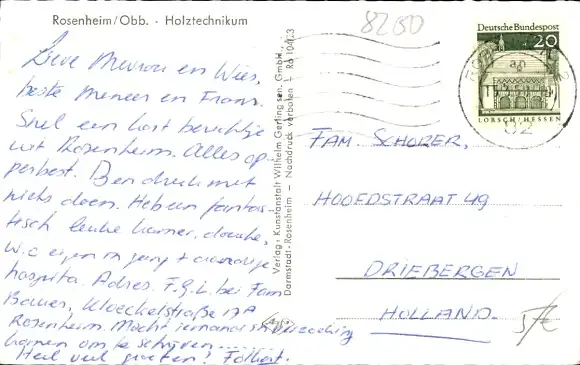 Rosenheim/Obb. · Holztechnikum
8200
Lieve Mevrou en Wies,
beste Meneer en Frans.
Snel een kort berichtje
uit Rosenheim. Alles op-
perbest. Ben druk met
niets doen. Heb een fantas-
tisch leuke kamer, douche,
W.C eigen en jong + aardige
hospita. Adres. F.G.L. bei Fam
Bauer, Kloeckelstraße 17A
Rosenheim. Mocht iemand in verzoeking
komen om te schrijven.......
Heel veel groeten!
Verlag: Kunstanstalt Wilhelm Gerling sen. GmbH.,
Darmstadt-Rosenheim — Nachdruck verboten —
Deutsche Bundespost
20
LORSCH/HESSEN
82
FAM. SCHOLER,
HOOFDSTRAAT 49
DRIEBERGEN
HOLLAND.